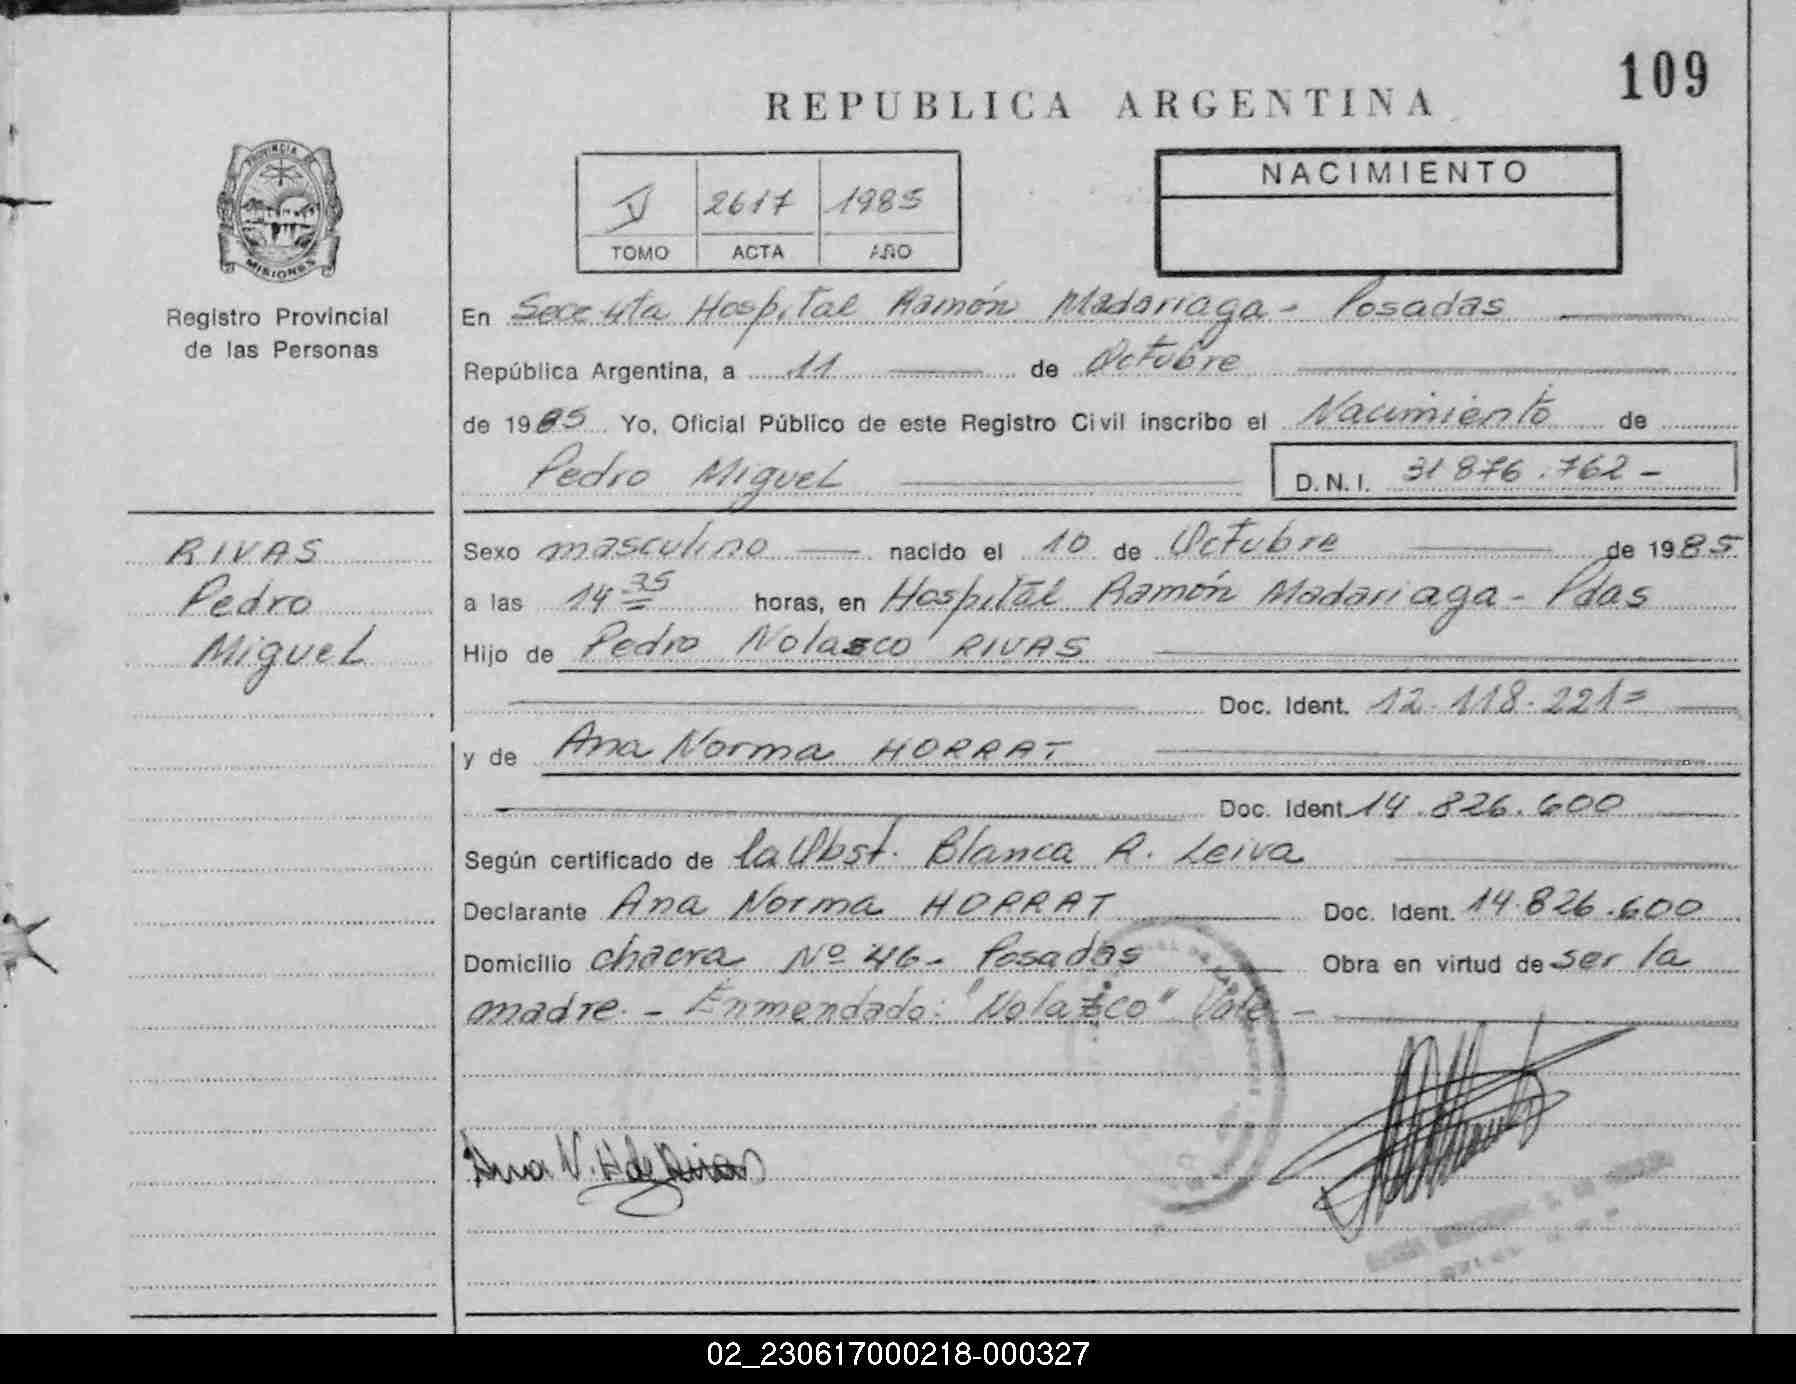 109
REPUBLICA ARGENTINA
PROVINCIA DE
MISIONES
Registro Provincial
de las Personas
V 2617 1985
TOMO ACTA AÑO
NACIMIENTO
En Secc 4ta Hospital Ramón Madariaga - Posadas
República Argentina, a 11 de Octubre
de 1985 Yo, Oficial Público de este Registro Civil inscribo el Nacimiento de
Pedro Miguel D.N.I. 31 876.762-
RIVAS
Pedro
Miguel
Sexo masculino nacido el 10 de Octubre de 1985
a las 14 35 horas, en Hospital Ramón Madariaga - Pdas
Hijo de Pedro Nolasco RIVAS
Doc. Ident. 12.118.221=
y de Ana Norma HORRAT
Doc. Ident. 14.826.600
Según certificado de la Obst. Blanca A. Leiva
Declarante Ana Norma HORRAT Doc. Ident. 14.826.600
Domicilio chacra Nº 46- Posadas Obra en virtud de ser la
madre. - Enmendado: "Nolasco" Vale -
Ana N. H de Rivas
02_230617000218-000327